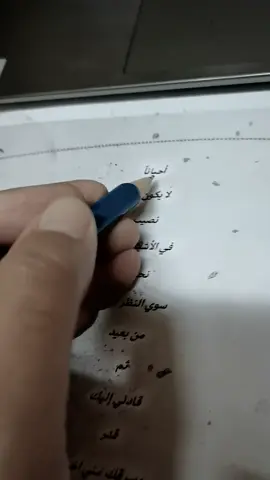 أحياناً
لا يكون
نصيب
في الأش
نح
سوي النظر
من بعيد
ثم
قادني إليك
قدر